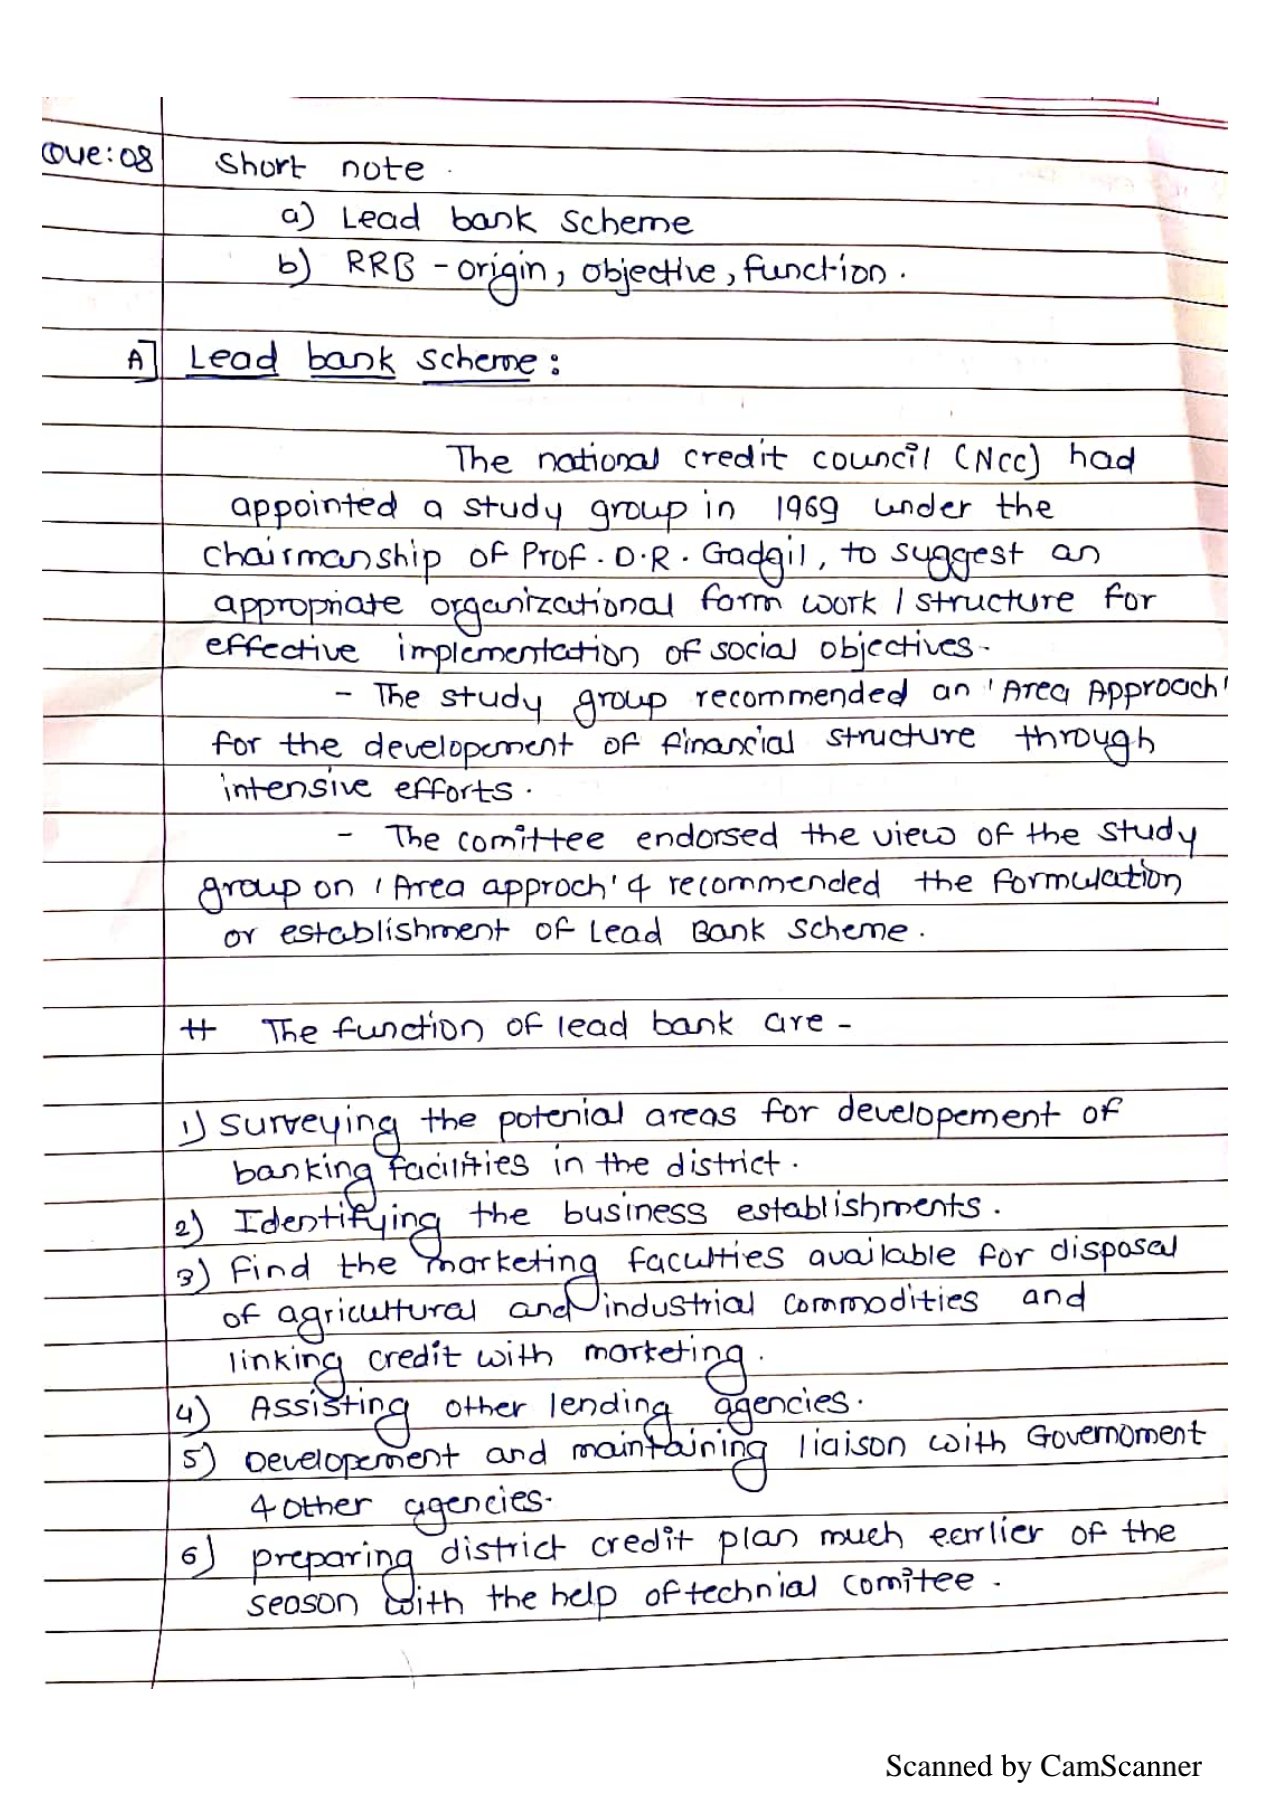 Que:08 Short note.
a) Lead bank scheme
b) RRB - origin, objective, function.
A] Lead bank scheme:
The national credit council (NCC) had
appointed a study group in 1969 under the
chairmanship of Prof. D.R. Gadgil, to suggest an
appropriate organizational form work / structure for
effective implementation of social objectives.
- The study group recommended an 'Area Approach'
for the developement of financial structure through
intensive efforts.
- The comittee endorsed the view of the study
group on 'Area approch' & recommended the formulation
or establishment of Lead Bank scheme.
# The function of lead bank are -
1) surveying the potenial areas for developement of
banking facilities in the district.
2) Identifying the business establishments.
3) find the marketing faculties available for disposal
of agricultural and industrial commodities and
linking credit with marketing.
4) Assisting other lending agencies.
5) Developement and maintaining liaison with Governoment
& other agencies.
6) preparing district credit plan much earlier of the
season with the help of technial comitee.
Scanned by CamScanner